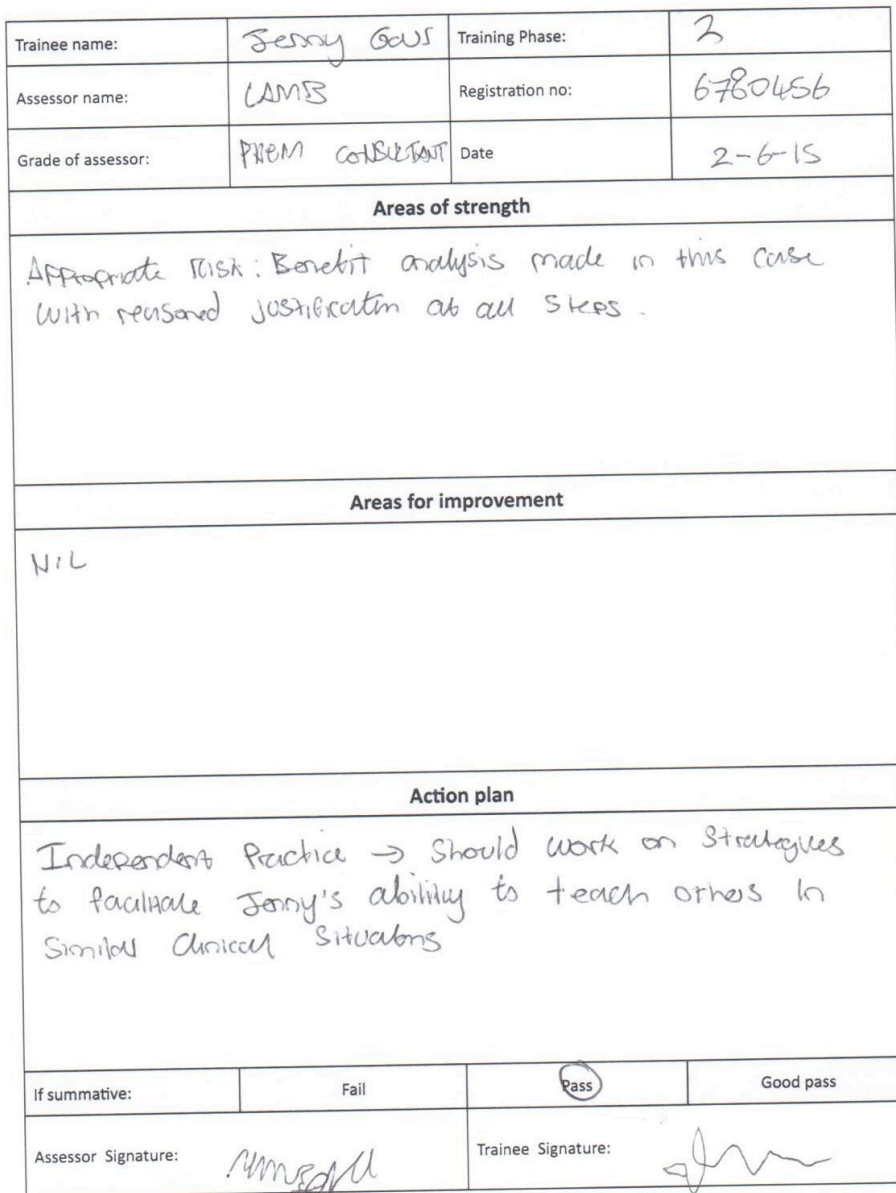 Trainee name: Jenny Training Phase: 2
Assessor name: LAMB Registration no: 6780456
Grade of assessor: PHEM CONSULTANT Date 2-6-15
Areas of strength
Appropriate Risk: Benefit analysis made in this case
with reasoned justification at all steps.
Areas for improvement
NIL
Action plan
Independent Practice → Should work on Strategies
to facilitate Jenny's ability to teach others in
Similar Clinical Situations
If summative: Fail Pass Good pass
Assessor Signature: Trainee Signature: